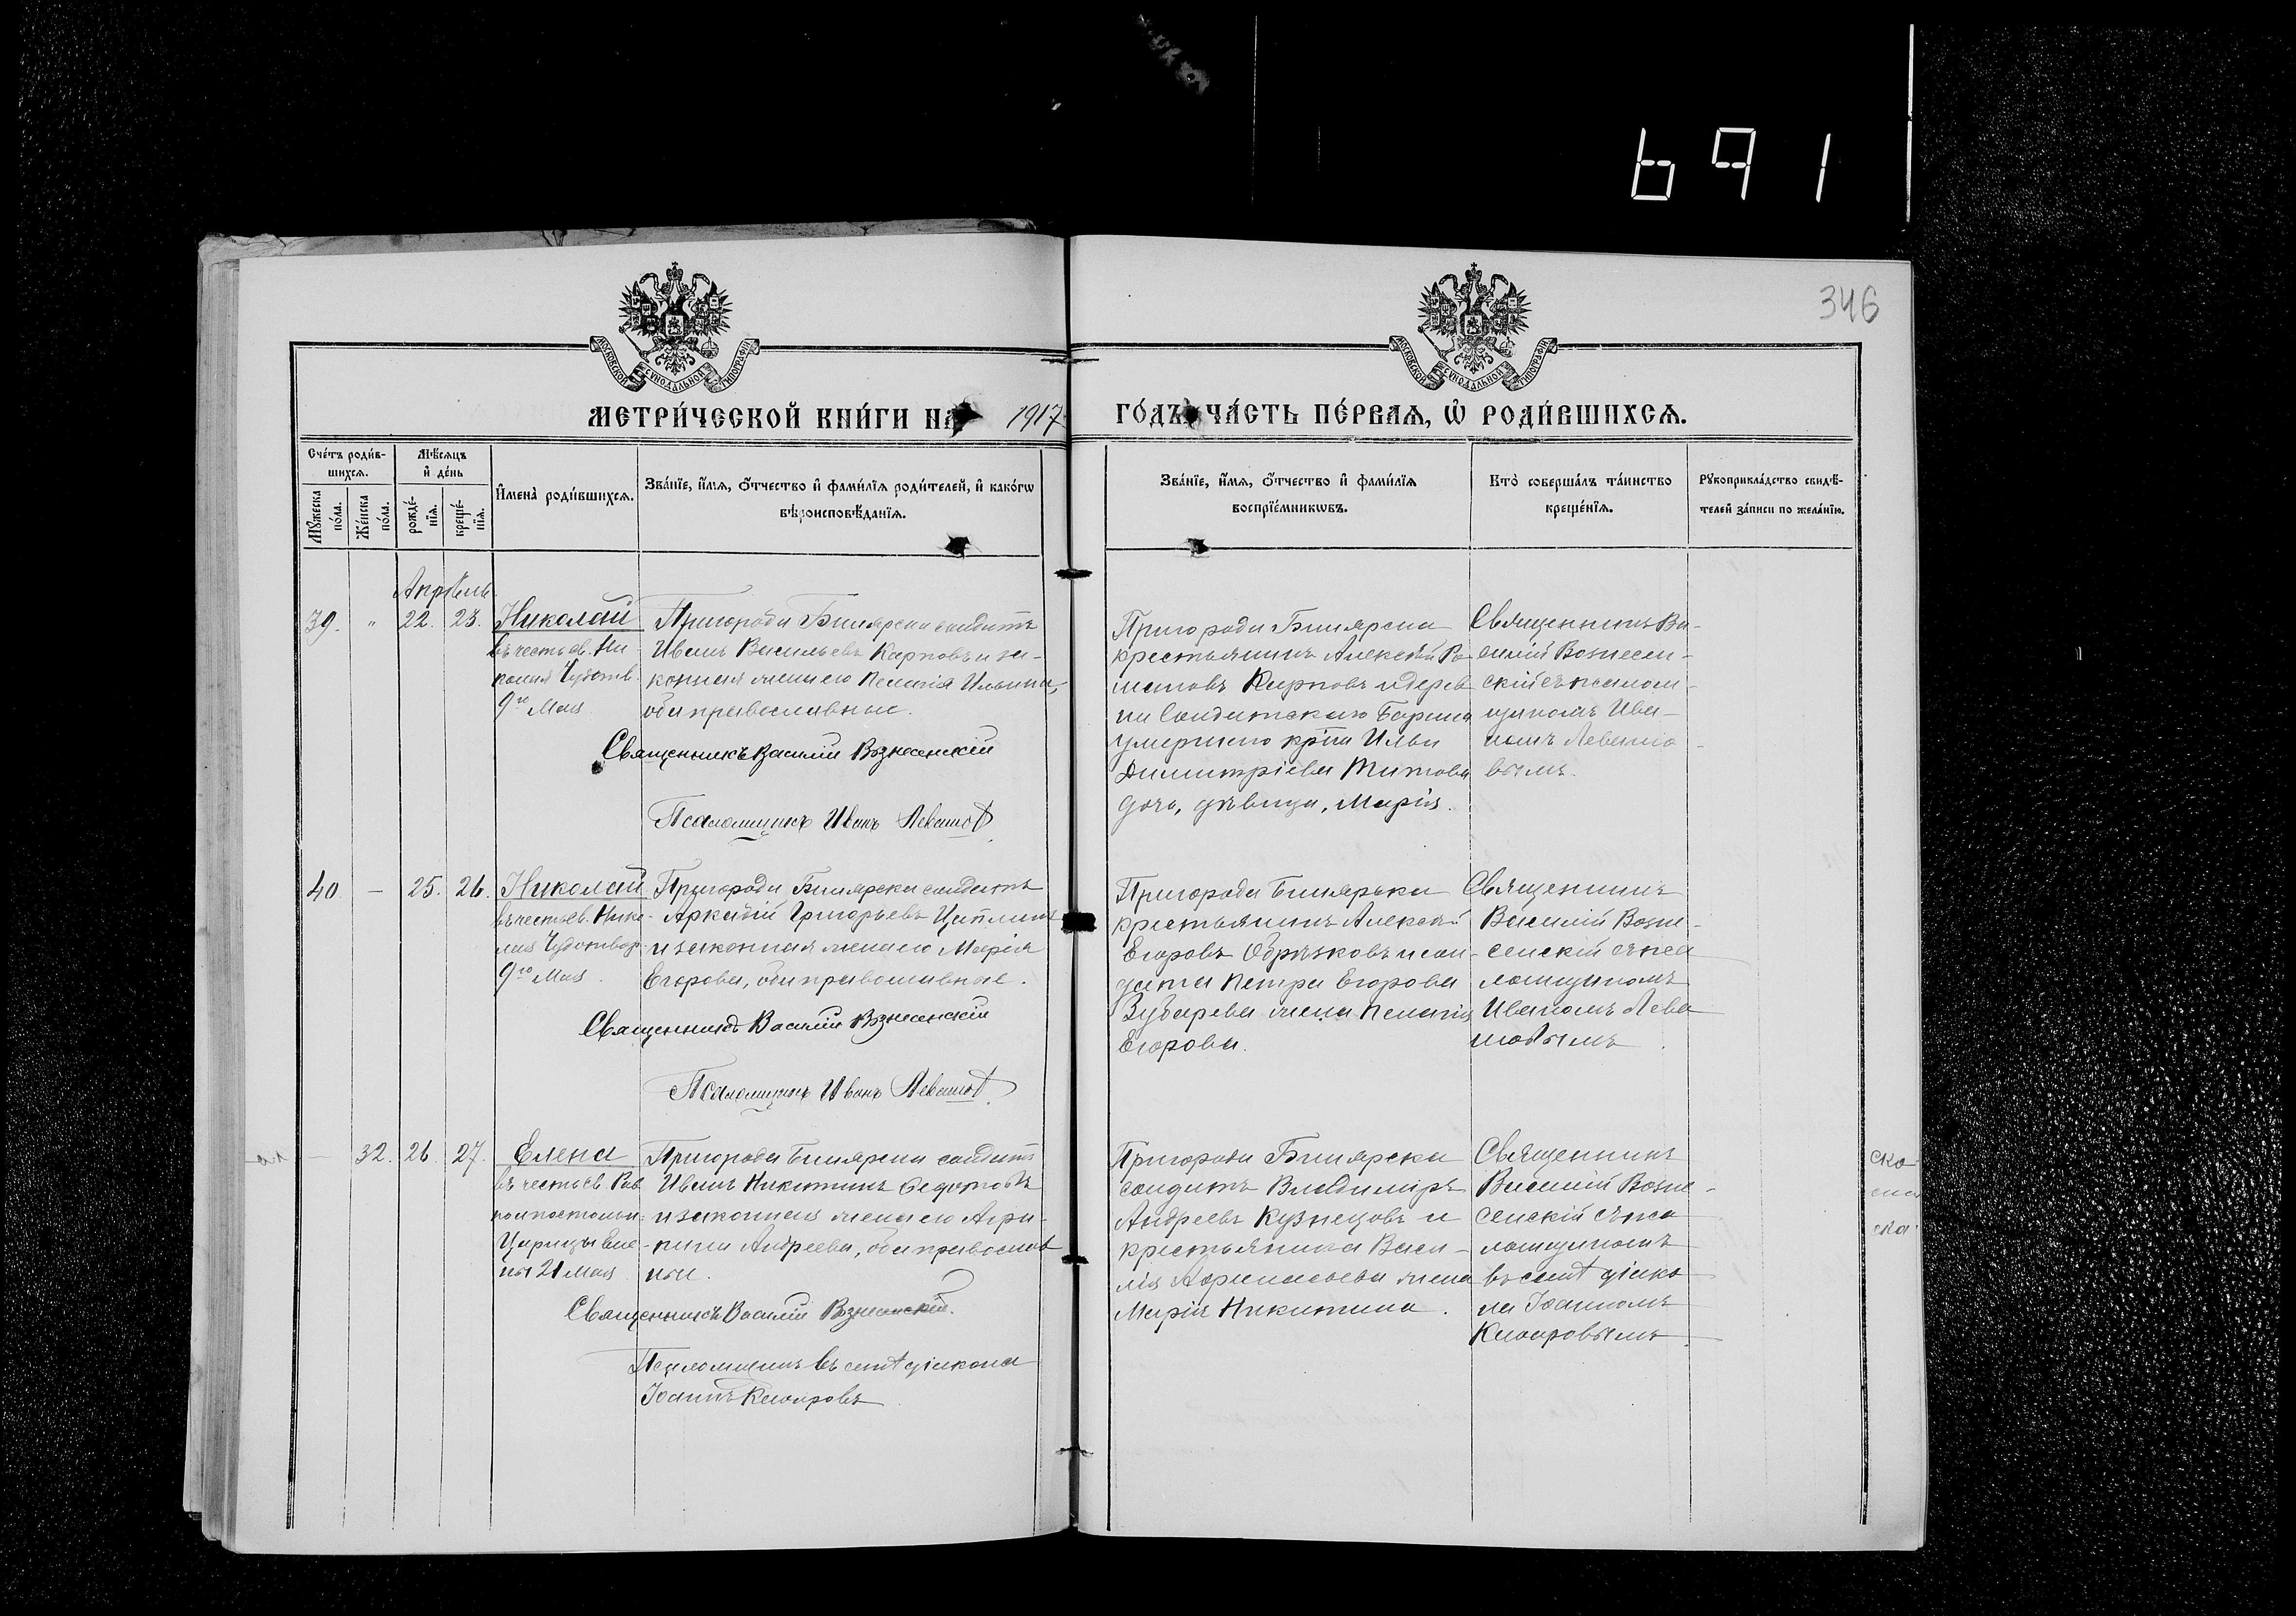 691
346
МОСКОВСКОЙ СѴНОДАЛЬНОЙ ТИПОГРАФІИ
МОСКОВСКОЙ СѴНОДАЛЬНОЙ ТИПОГРАФІИ
МЕТРИ́ЧЕСКОЙ КНИ́ГИ НА 1917 ГО́ДЪ ЧА́СТЬ ПЕ́РВАѦ, Ѡ РОДИ́ВШИХСѦ.
Сче́тъ роди́в-
шихсѧ.
Мꙋ́жеска
по́ла.
Же́нска
по́ла.
Мѣ́сѧцъ
и҆ де́нь
рожде́-
нїѧ.
креще́-
нїѧ.
И҆мена̀ роди́вшихсѧ.
Зва́нїе, и҆́мѧ, ѻ҆́тчество и҆ фами́лїѧ роди́телей, и҆ како́гѡ
вѣроисповѣ́данїѧ.
Зва́нїе, и҆́мѧ, ѻ҆́тчество и҆ фами́лїѧ
воспрїе́мникѡвъ.
Кто̀ соверша́лъ та́инство
креще́нїѧ.
Рꙋкоприкла́дство свидѣ́-
телей за́писи по жела́нїю.
Апрѣль
39. " 22. 23.
Николай
въ честь св. Ни
колая Чудотв.
9го Мая
Пригорода Билярска солдатъ
Иванъ Васильевъ Карповъ и за-
конная жена его Пелагія Ильина,
оба православные.
Священникъ Василій Вознесенскій
Псаломщикъ Иванъ Левашов
Пригорода Билярска
крестьянинъ Алексѣй Ро-
мановъ Карповъ и дерев
ни Солдатскаго Барана
умершего кр-на Ильи
Димитріева Титова
дочь, дѣвица, Марія.
Священникъ Ва-
силій Вознесен-
скій съ псалом-
щикомъ Ива-
номъ Левашо-
вымъ.
40 — 25. 26.
Николай
въ честь св. Нико-
лая Чудотвор.
9го Мая.
Пригорода Билярска солдатъ
Аркадій Григорьевъ Цаплинъ
и законная жена его Марія
Егорова, оба православные.
Священникъ Василій Вознесенскій
Псаломщикъ Иванъ Левашов
Пригорода Билярска
крестьянинъ Алексѣй
Егоровъ Обрѣзковъ и сол-
дата Петра Егорова
Зубарева жена Пелагія
Егорова.
Священникъ
Василій Возне-
сенскій съ пса
ломщикомъ
Иваномъ Лева
шовымъ.
— 32. 26. 27.
Елена
въ честь св. Рав
ноапостольн.
Царицы Еле-
ны 21 Мая
Пригорода Билярска солдатъ
Иванъ Никитинъ Федотовъ
и законная жена его Агри-
пина Андреева, оба православ
ны.
Священникъ Василій Вознесенскій.
Псаломщикъ въ санѣ діакона
Іоаннъ
Пригорода Билярска
солдатъ Владиміръ
Андреевъ Кузнецовъ и
крестьянина Васи-
лія Афанасьева жена
Марія Никитина.
Священникъ
Василій Возне-
сенскій съ пса
ломщикомъ
въ санѣ діако
на Іоанномъ
ска
ска